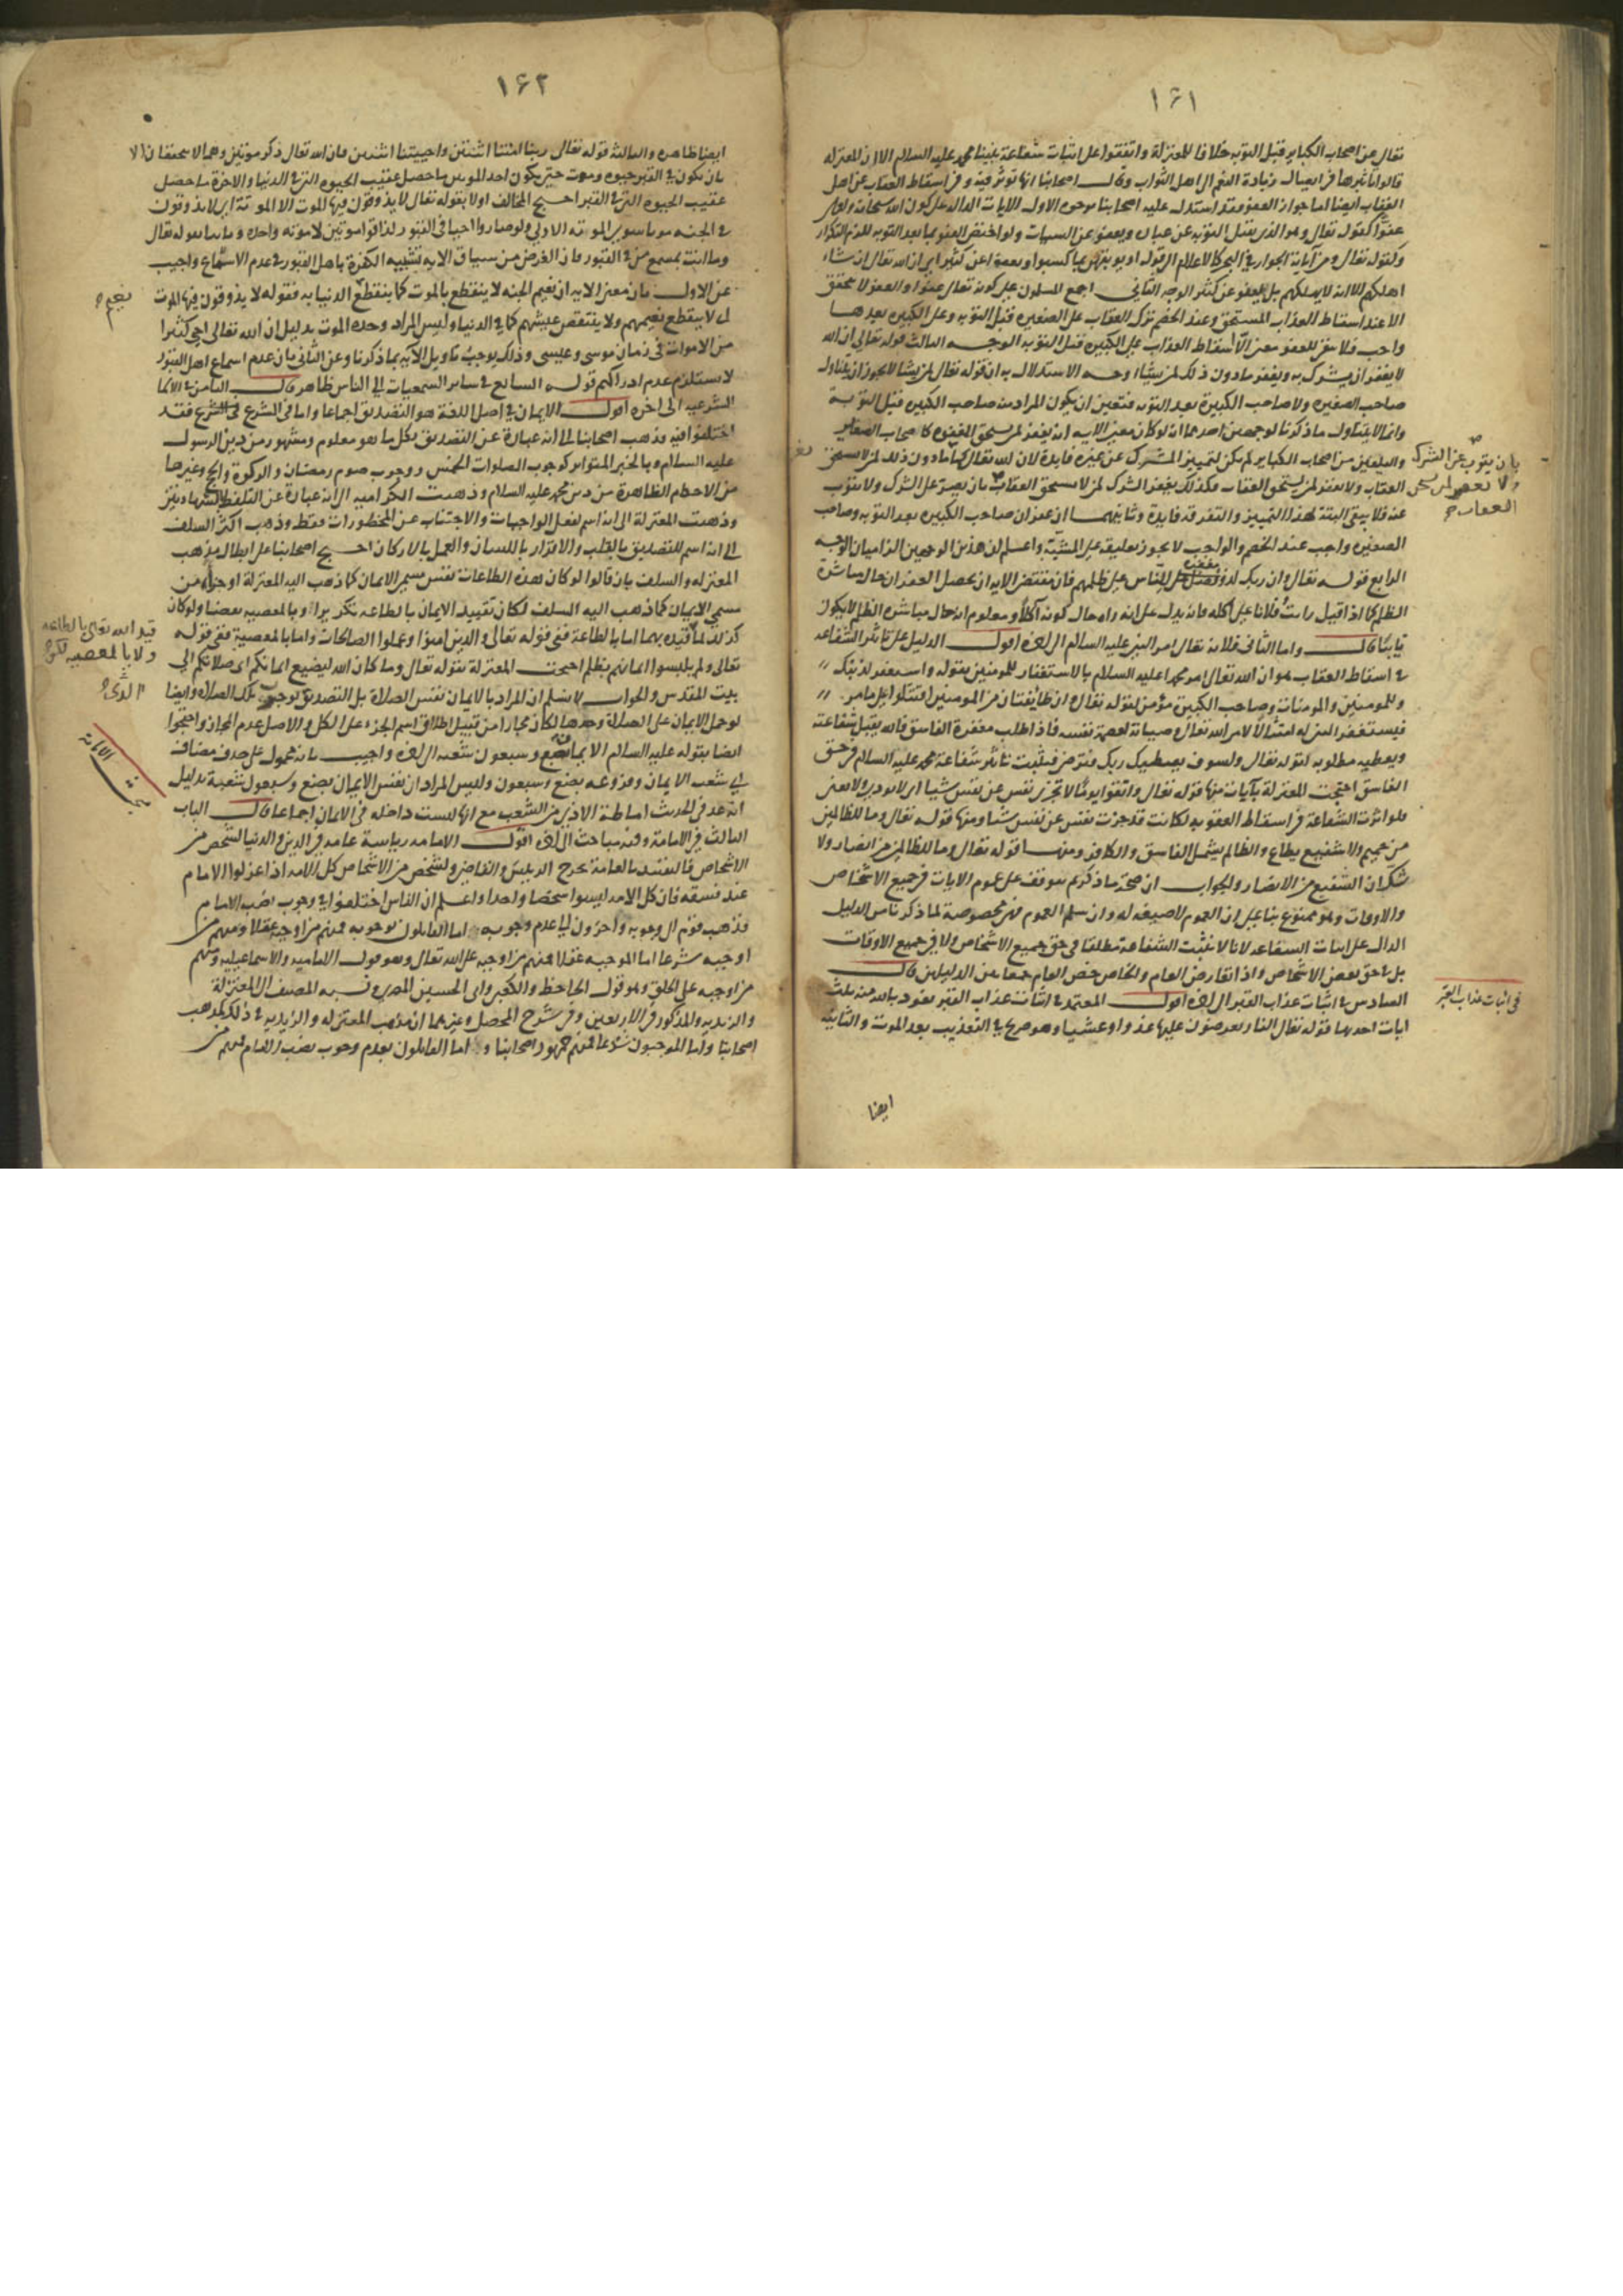 ١۶١
تعالى عن اصحاب الكباير قبل التوبه خلافا للمعتزلة واتفقوا على اثبات شفاعة نبينا محمد عليه السلام الا ان المعتزله
قالوا تاثيرها في ايصال زيادة النعم الى اهل الثواب وقال اصحابنا انها توثر فيه و في اسقاط العقاب عن اهل
العقاب ايضا اما جواز العفو فقد استدل عليه اصحابنا بوجوه الاول الايات الداله على كون الله سبحانه وتعالى
عفوا كقوله تعالى وهو الذى يقبل التوبه عن عباده ويعفو عن السيات ولو اختص العفو بما بعد التوبه للزم التكرار
وكقوله تعالى ومن آياته الجوار في البحر كالاعلام الى قوله او يوبقهن بما كسبوا ويعف عن كثير اى ان الله تعالى ان شاء
اهلكهم الا انه لا يهلكهم بل يعفو عن كثير الوجه الثاني اجمع المسلمون على كونه تعالى عفوا والعفو لا يتحقق
الا عند اسقاط العذاب المستحق وعند الخصم ترك العقاب على الصغيره قبل التوبه وعلى الكبيره بعدها
واجب فلا يبقى للعفو معنى الا اسقاط العذاب على الكبيره قبل التوبه الوجه الثالث قوله تعالى ان الله
لا يغفر ان يشرك به ويغفر ما دون ذلك لمن يشاء وجه الاستدلال به ان قوله تعالى لمن يشا لا يجوز ان يتناول
صاحب الصغيره ولا صاحب الكبيرة بعد التوبه فتعين ان يكون المراد منه صاحب الكبيره قبل التوبة
وانما لا يتناول ما ذكرنا لوجهين احدهما انه لو كان معنى الايه انه يغفر لمن يستحق المغفره كاصحاب الصغاير
والتايبين من اصحاب الكباير لم يكن لتمييز الشرك عن غيره فايدة لان الله تعالى كما ما دون ذلك لمن لا يستحق
العقاب ولا يغفر لمن يستحق العقاب فكذلك يغفر الشرك لمن لا يستحق العقاب بان يصر على الشرك ولا يتوب
عنه فلا يبقى البتة لهذا التمييز والتفرقه فايدة وثانيهما ان غفران صاحب الكبيره بعد التوبه وصاحب
الصغيره واجب عند الخصم والواجب لا يجوز تعليقه على المشيّة واعلم ان هذين الوجهين الزاميان الوجه
الرابع قوله تعالى وان ربك لذو مغفرة للناس على ظلمهم فان مقتضى الايه ان يحصل الغفران حال مباشرة
الظلم كما اذا قيل رايت فلانا على أكله فانه يدل على انه راه حال كونه آكلاً ومعلوم ان حال مباشره الظلم لا يكون
تايبا قال واما الثانى فلانه تعالى امر النبى عليه السلام الى اخره اقول الدليل على تاثير الشفاعه
في اسقاط العقاب هو ان الله تعالى امر محمدا عليه السلام بالاستغفار للمومنين بقوله واستغفر لذنبك
وللمومنين والمومنات وصاحب الكبيرة مؤمن لقوله تعالى وان طايفتان من المومنين اقتتلوا على ما مر
فيستغفر النبى له امتثالا لامر الله تعالى وصيانة لعصمة نفسه فاذا طلب مغفرة الفاسق فالله يقبل شفاعته
ويعطيه مطلوبه لقوله تعالى ولسوف يعطيك ربك فترضى فثبت تاثير شفاعة محمد عليه السلام في حق
الفاسق احتجت المعتزلة بآيات منها قوله تعالى واتقوا يوما لا تجزى نفس عن نفس شيا اى لا يودى ولا يغنى
فلو اثرت الشفاعة في اسقاط العقوبه لكانت قد جزت نفس عن نفس شيا ومنها قوله تعالى وما للظالمين
من حميم ولا شفيع يطاع والظالم يشمل الفاسق والكافر ومنها قوله تعالى وما للظالمين من انصار ولا
شك ان الشفيع من الانصار والجواب ان صحة ما ذكرتم يتوقف على عموم الايات في جميع الاشخاص
والاوقات وهو ممنوع بنا على ان العموم لا صيغه له وان سلم العموم فهي مخصوصة لما ذكرنا من الدليل
الدال على اثبات الشفاعه لانا لا نثبت الشفاعة مطلقا في حق جميع الاشخاص ولا في جميع الاوقات
بل في حق بعض الاشخاص واذا تعارض العام والخاص خص العام جمعا بين الدليلين قال
السادس في اثبات عذاب القبر الى اخره اقول المعتمد في اثبات عذاب القبر نعوذ بالله منه ثلث
ايات احدها قوله تعالى النار يعرضون عليها غدوا وعشيا وهو صريح في التعذيب بعد الموت والثانيه
ايضا
بان يتوب عن الشرك
ولا يغفر لمن يستحق
العقاب
في اثبات عذاب القبر
١۶٢
ايضا ظاهره والثالثة قوله تعالى ربنا امتنا اثنتين واحييتنا اثنتين فان الله تعالى ذكر موتتين وهما لا يتحققان الا
بان يكون في القبر حيوه وموت حتى يكون احد الموتين ما حصل عقيب الحيوه التى في الدنيا والاخرة ما حصل
عقيب الحيوه التى في القبر احتج المخالف اولا بقوله تعالى لا يذوقون فيها الموت الا الموتة الاولى اى لا يذوقون
في الجنه موتا سوى الموته الاولى ولو صاروا احيا في القبور لذاقوا موتتين لا موته واحده وثانيا بقوله تعالى
وما انت بمسمع من في القبور فان الغرض من سياق الايه تشبيه الكفرة باهل القبور في عدم الاستماع واجيب
عن الاول بان معنى الايه ان نعيم الجنه لا ينقطع بالموت كما ينقطع الدنيا به فقوله لا يذوقون فيها الموت
اى لا ينقطع نعيمهم ولا ينتقص عيشهم كما في الدنيا وليس المراد وحدة الموت بدليل ان الله تعالى احيى كثيرا
من الاموات في زمان موسى وعيسى وذلك يوجب تاويل الآية بما ذكرنا وعن الثانى بان عدم اسماع اهل القبور
لا يستلزم عدم ادراكهم قوله السابع في ساير السمعيات الى الناس ظاهر قال الثامن في الاسما
الشرعيه الى اخره اقول الايمان في اصل اللغة هو التصديق اجماعا واما في الشرع فقد
اختلفوا فيه فذهب اصحابنا الى انه عبارة عن التصديق بكل ما هو معلوم ومشهور من دين الرسول
عليه السلام وبالخبر المتواتر كوجوب الصلوات الخمس ووجوب صوم رمضان والزكوة والحج وغيرها
من الاحكام الظاهرة من دين محمد عليه السلام وذهبت الكراميه الى انه عبارة عن التلفظ بالشهادتين
وذهبت المعتزلة الى انه اسم لفعل الواجبات والاجتناب عن المحظورات فقط وذهب اكثر السلف
الى انه اسم للتصديق بالقلب والاقرار باللسان والعمل بالاركان احتج اصحابنا على ابطال مذهب
المعتزله والسلف بان قالوا لو كان هذه الطاعات نفس مسمى الايمان كما ذهب اليه المعتزلة او جزاء من
مسمى الايمان كما ذهب اليه السلف لكان تقييد الايمان بالطاعه تكريرا وبالمعصيه نقضا ولو كان
كذلك لما قيده بهما اما بالطاعة ففي قوله تعالى والذين امنوا وعملوا الصالحات واما بالمعصية ففي قوله
تعالى ولم يلبسوا ايمانهم بظلم احتجت المعتزلة بقوله تعالى وما كان الله ليضيع ايمانكم اى صلاتكم الى
بيت المقدس والجواب لا نسلم ان المراد بالايمان نفس الصلاة بل التصديق بوجوب تلك الصلاة وايضا
لو حمل الايمان على الصلاة وحدها لكان مجازا من قبيل اطلاق اسم الجزء على الكل والاصل عدم المجاز واحتجوا
ايضا بقوله عليه السلام الايمان بضع وسبعون شعبه الى اخره واجيب بانه محمول على حذف مضاف
اى شعب الايمان وفروعه بضع وسبعون وليس المراد ان نفس الايمان بضع وسبعون شعبة بدليل
انه عد في الحديث اماطة الاذى من الشعب مع انها ليست داخله في الايمان اجماعا قال الباب
الثالث في الامامة وفيه مباحث الى اخره اقول الامامه رياسة عامه في الدين والدنيا لشخص من
الاشخاص فالتقييد بالعامة يخرج الرييس والقاضى ولشخص من الاشخاص كل الامه اذا عزلوا الامام
عند فسقه فان كل الامه ليسوا شخصا واحدا واعلم ان الناس اختلفوا في وجوب نصب الامام
فذهب قوم الى وجوبه وآخرون الى عدم وجوبه اما القايلون بوجوبه فمنهم من اوجبه عقلا ومنهم من
اوجبه شرعا اما الموجبه عقلا فمنهم من اوجبه على الله تعالى وهو قول الاماميه والاسماعيليه ومنهم
من اوجبه على الخلق وهو قول الجاحظ والكعبى وابى الحسين البصرى ونسبه المصنف الى المعتزلة
والزيديه والمذكور في الاربعين وفي شرح المحصل وغيرهما ان مذهب المعتزله والزيديه في ذلك كمذهب
اصحابنا واما الموجبون شرعا فمنهم جمهور اصحابنا واما القايلون بعدم وجوب نصب الامام فمنهم من
نعيم
قيد الله تعالى بالطاعه
ولا بالمعصيه لكن
بحث الامامة